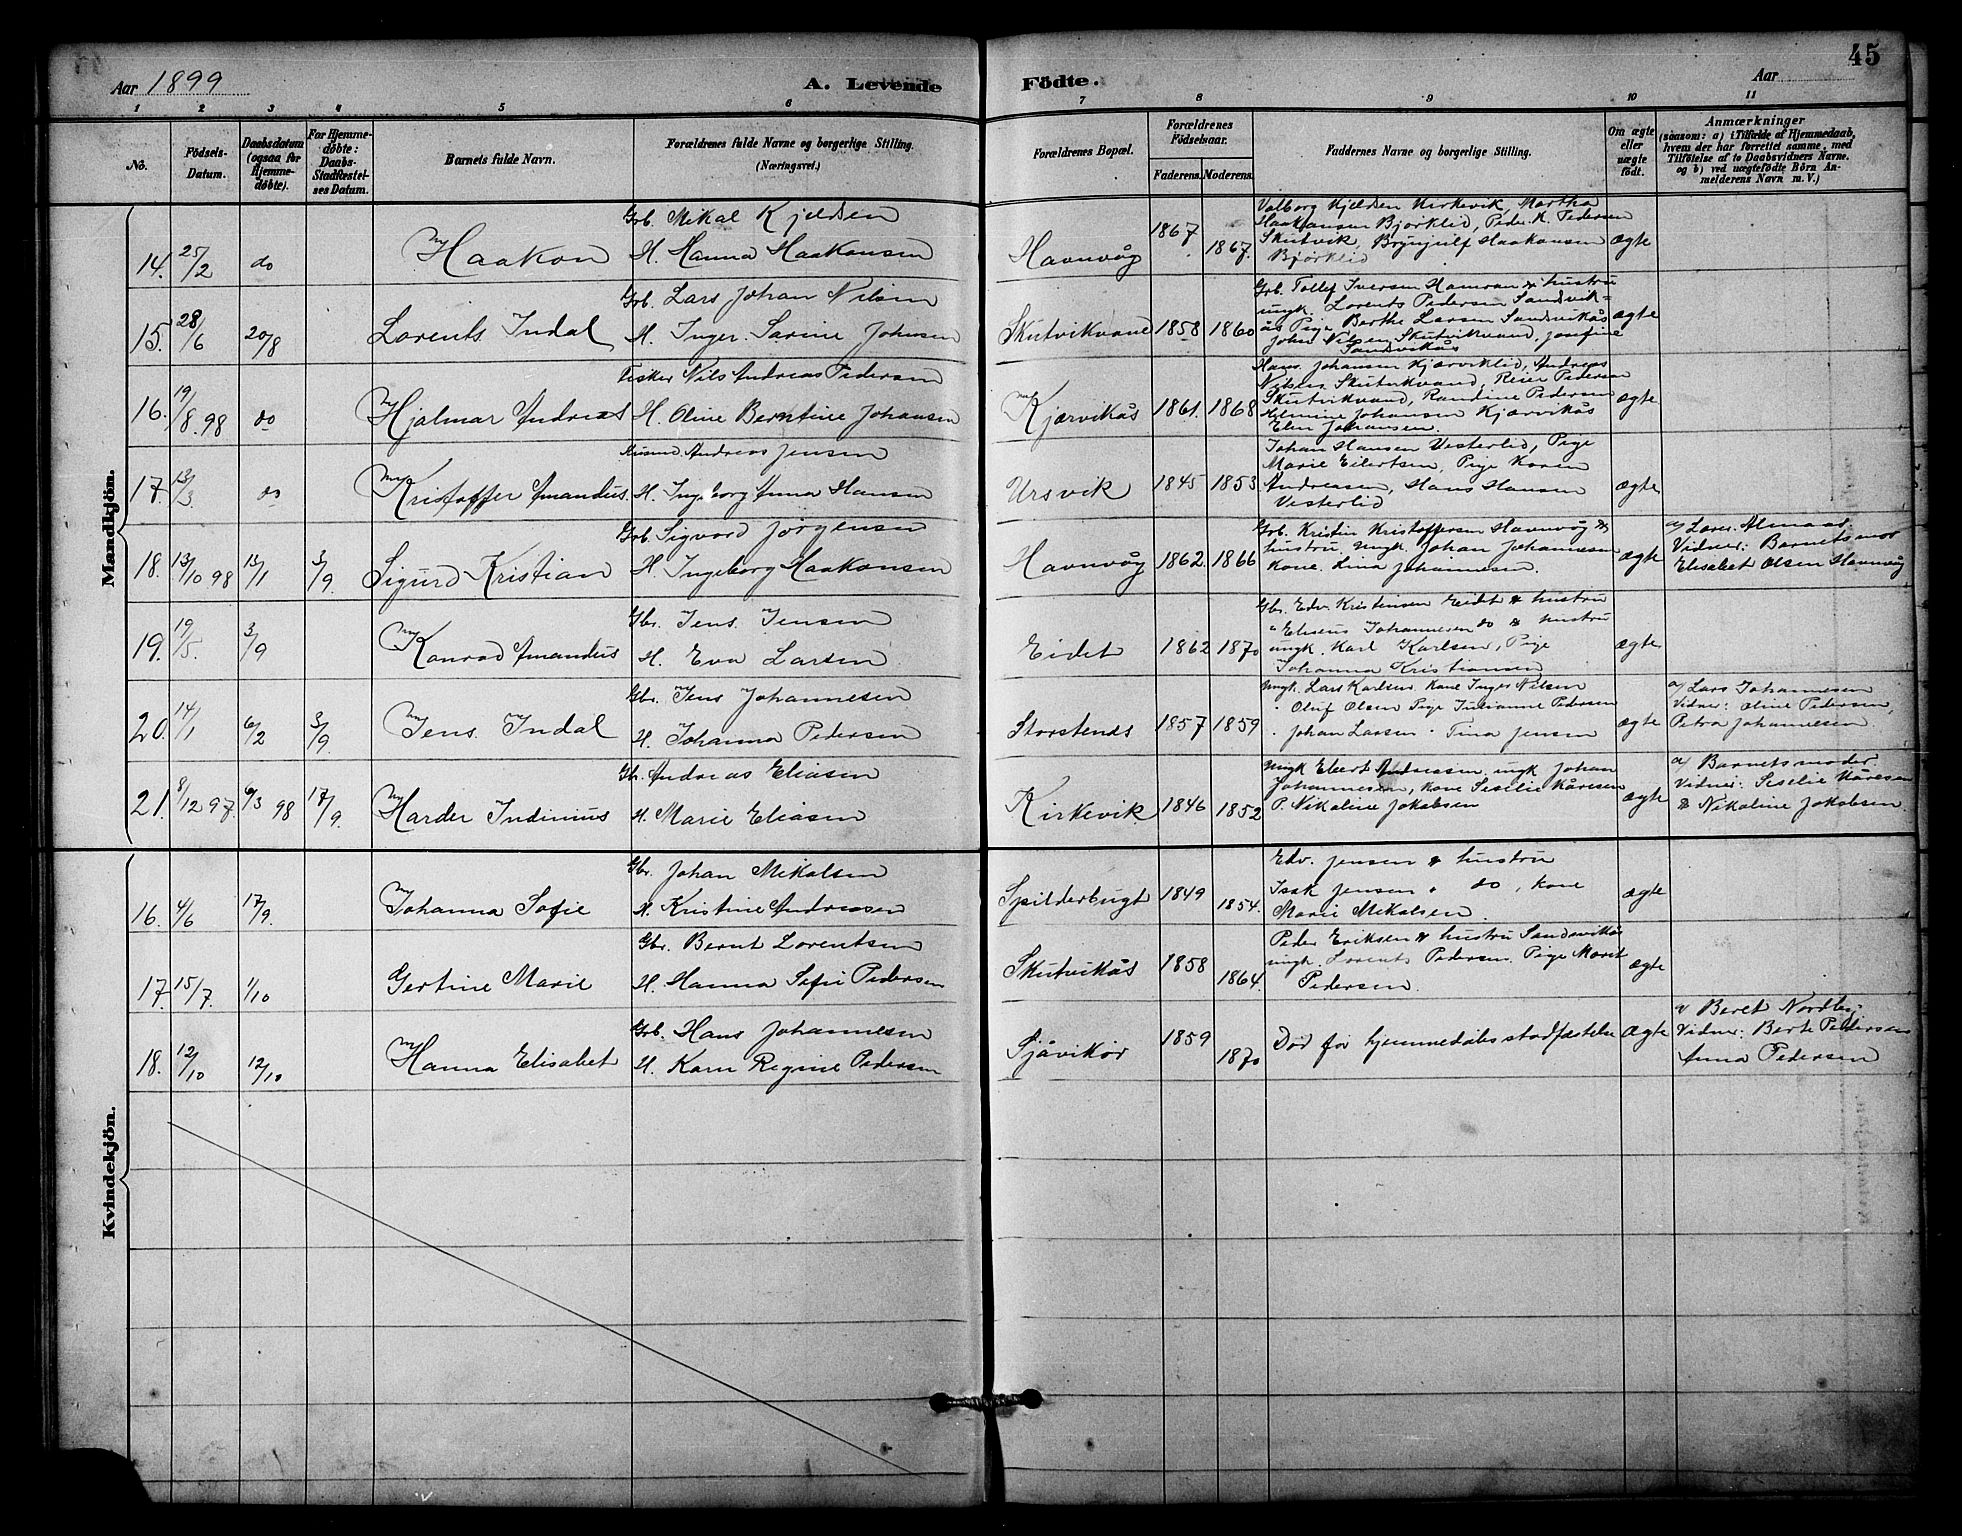 45
Aar 1899 A. Levende Födte. Aar
1 2 3 4 5 6 7 8 9 10 11
No.
Födsels-Datum.
Daabsdatum (ogsaa for Hjemmedöbte).
For Hjemmedöbte: Daabs-Stadfæstelses Datum.
Barnets fulde Navn.
Forældrenes fulde Navne og borgerlige Stilling. (Næringsvei.)
Forældrenes Bopæl.
Forældrenes Födselsaar.
Faderens. Moderens.
Faddernes Navne og borgerlige Stilling.
Om ægte eller uægte födt.
Anmærkninger
(saasom: a) i Tilfælde af Hjemmedaab, hvem der har forrettet samme, med Tilföielse af to Daabsvidners Navne. og b) ved uægtefödte Börn Anmelderens Navn m. V.)
Mandkjön.
14. 25/2 do Haakon
Grb. Mikal Kjeldsen
H. Hanna Haakonsen
Havnvåg 1867 1867.
Valborg Kjeldsen Kirkevik, Martha
Haakonsen Bjørklid, Peder K. Pedersen
Skutvik, Brynjulf Haakonsen
Bjørklid
Ægte
15. 28/6 20/8 Lorents Indal
Grb. Lars Johan Nilsen
H. Inger Sarine Johnsen
Skutvikvand 1858 1860
Grb. Tollef Iversen Hamran & hustru
ungk. Lorents Pedersen Sandvik=
ås Pige Berthe Larsen Sandvikås
Johan Nilsen Skutvikvand, Josefine
Sandvikås
ægte
16. 19/8.98 do Hjalmar Andreas
Fisker Nils Andreas Pedersen
H. Oline Berntine Johansen
Kjærvikås 1861. 1868
Hans Johansen Kjærviklid, Andreas
Nilsen Skutvikvand, Reier Pedersen
Skutvikvand, Randine Pedersen
Johansen Kjærvikås
Elen Johansen.
ægte
17. 13/3 do Kristoffer Amandus.
Andreas Jensen
H. Ingeborg Anna Hansen
Ursvik 1845 1853
Johan Hansen Vesterlid, Pige
Marie Eilertsen, Pige Karen
Andreasen, Hans Hansen
Vesterlid
ægte
18. 13/10 98 13/1 3/9 Sigurd Kristian
Grb Sigvard Jørgensen
H. Ingeborg Haakonsen
Havnvåg 1862. 1866
Grb. Kristin Kristoffersen Havnvåg &
hustru, ungk. Johan Johannesen
Kone. Lina Johannesen.
ægte
a/ Lærer Almaas.
Vidner: Barnets mor
Elisabet Olsen Havnvåg
19. 19/5. 3/9 Konrad Amandus
Gbr. Jens Jensen
H. Eva Larsen
Eidet 1862 1870
Gbr. Edv. Kristensen Eidet & hustru
" Eliseus Johannesen do & hustru
ungk. Karl Karlsen, Pige
Johanna Kristiansen
ægte
20. 14/1 6/2 3/9 Jens Indal
Gbr. Jens Johannesen
H. Johanna Pedersen
Storstends 1857 1859
ungk. Lars Karlsen Kone Inger Nilsen
" Oluf Olsen Pige Julianne Pedersen
" Johan Larsen " Tina Jensen
ægte
a/ Lars Johannesen
Vidner: Oline Pedersen,
Petra Johannesen.
21. 8/12 97. 6/3 98 17/9. Harder Indinius
Gbr. Andreas Eliasen
H. Marie Eliasen
Kirkevik 1846 1852
ungk Elbert Andreasen, ungk Johan
Johannesen, kone Sesilie Kåresen
P. Nikoline Jakobsen
ægte
a/ Barnets moder
Vidner: Seselie Kåresen
& Nikoline Jakobsen.
Kvindekjön.
16. 4/6 17/9. Johanna Sofie
Gbr. Johan Mikalsen
H. Kristine Andreasen
Spilderbugt 1849 1854.
Edv. Jensen & hustru
Isak Jensen " do, kone
Marie Mikalsen.
ægte
17. 15/7. 1/10 Gertine Marie
Gbr. Bernt Lorentsen
H. Hanna Sofie Pedersen
Skutvikås 1858 1864.
Peder Eriksen & hustru Sandvikås
ungk. Lorents Pedersen. Pige Marit
Pedersen.
ægte
18. 12/10 12/10 Hanna Elisabet
Grb. Hans Johannesen
H. Karn Regine Pedersen
Sjåvikør 1859 1870
Død før hjemmedåbs stadfæstelse
Ægte
a/ Beret Nordbø;
Vidner: Berte Pedersen
Anna Pedersen